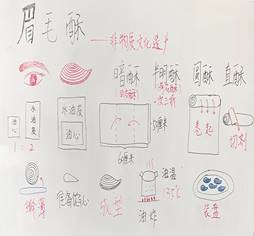 眉毛酥
——非物质文化遗产
暗酥 半明酥 圆酥 直酥
水油皮
油心
水油皮
油心
1 : 2
6厘米
厘米
卷起
切割
擀薄
准备馅心
成型
油炸
油温
135℃
装盘